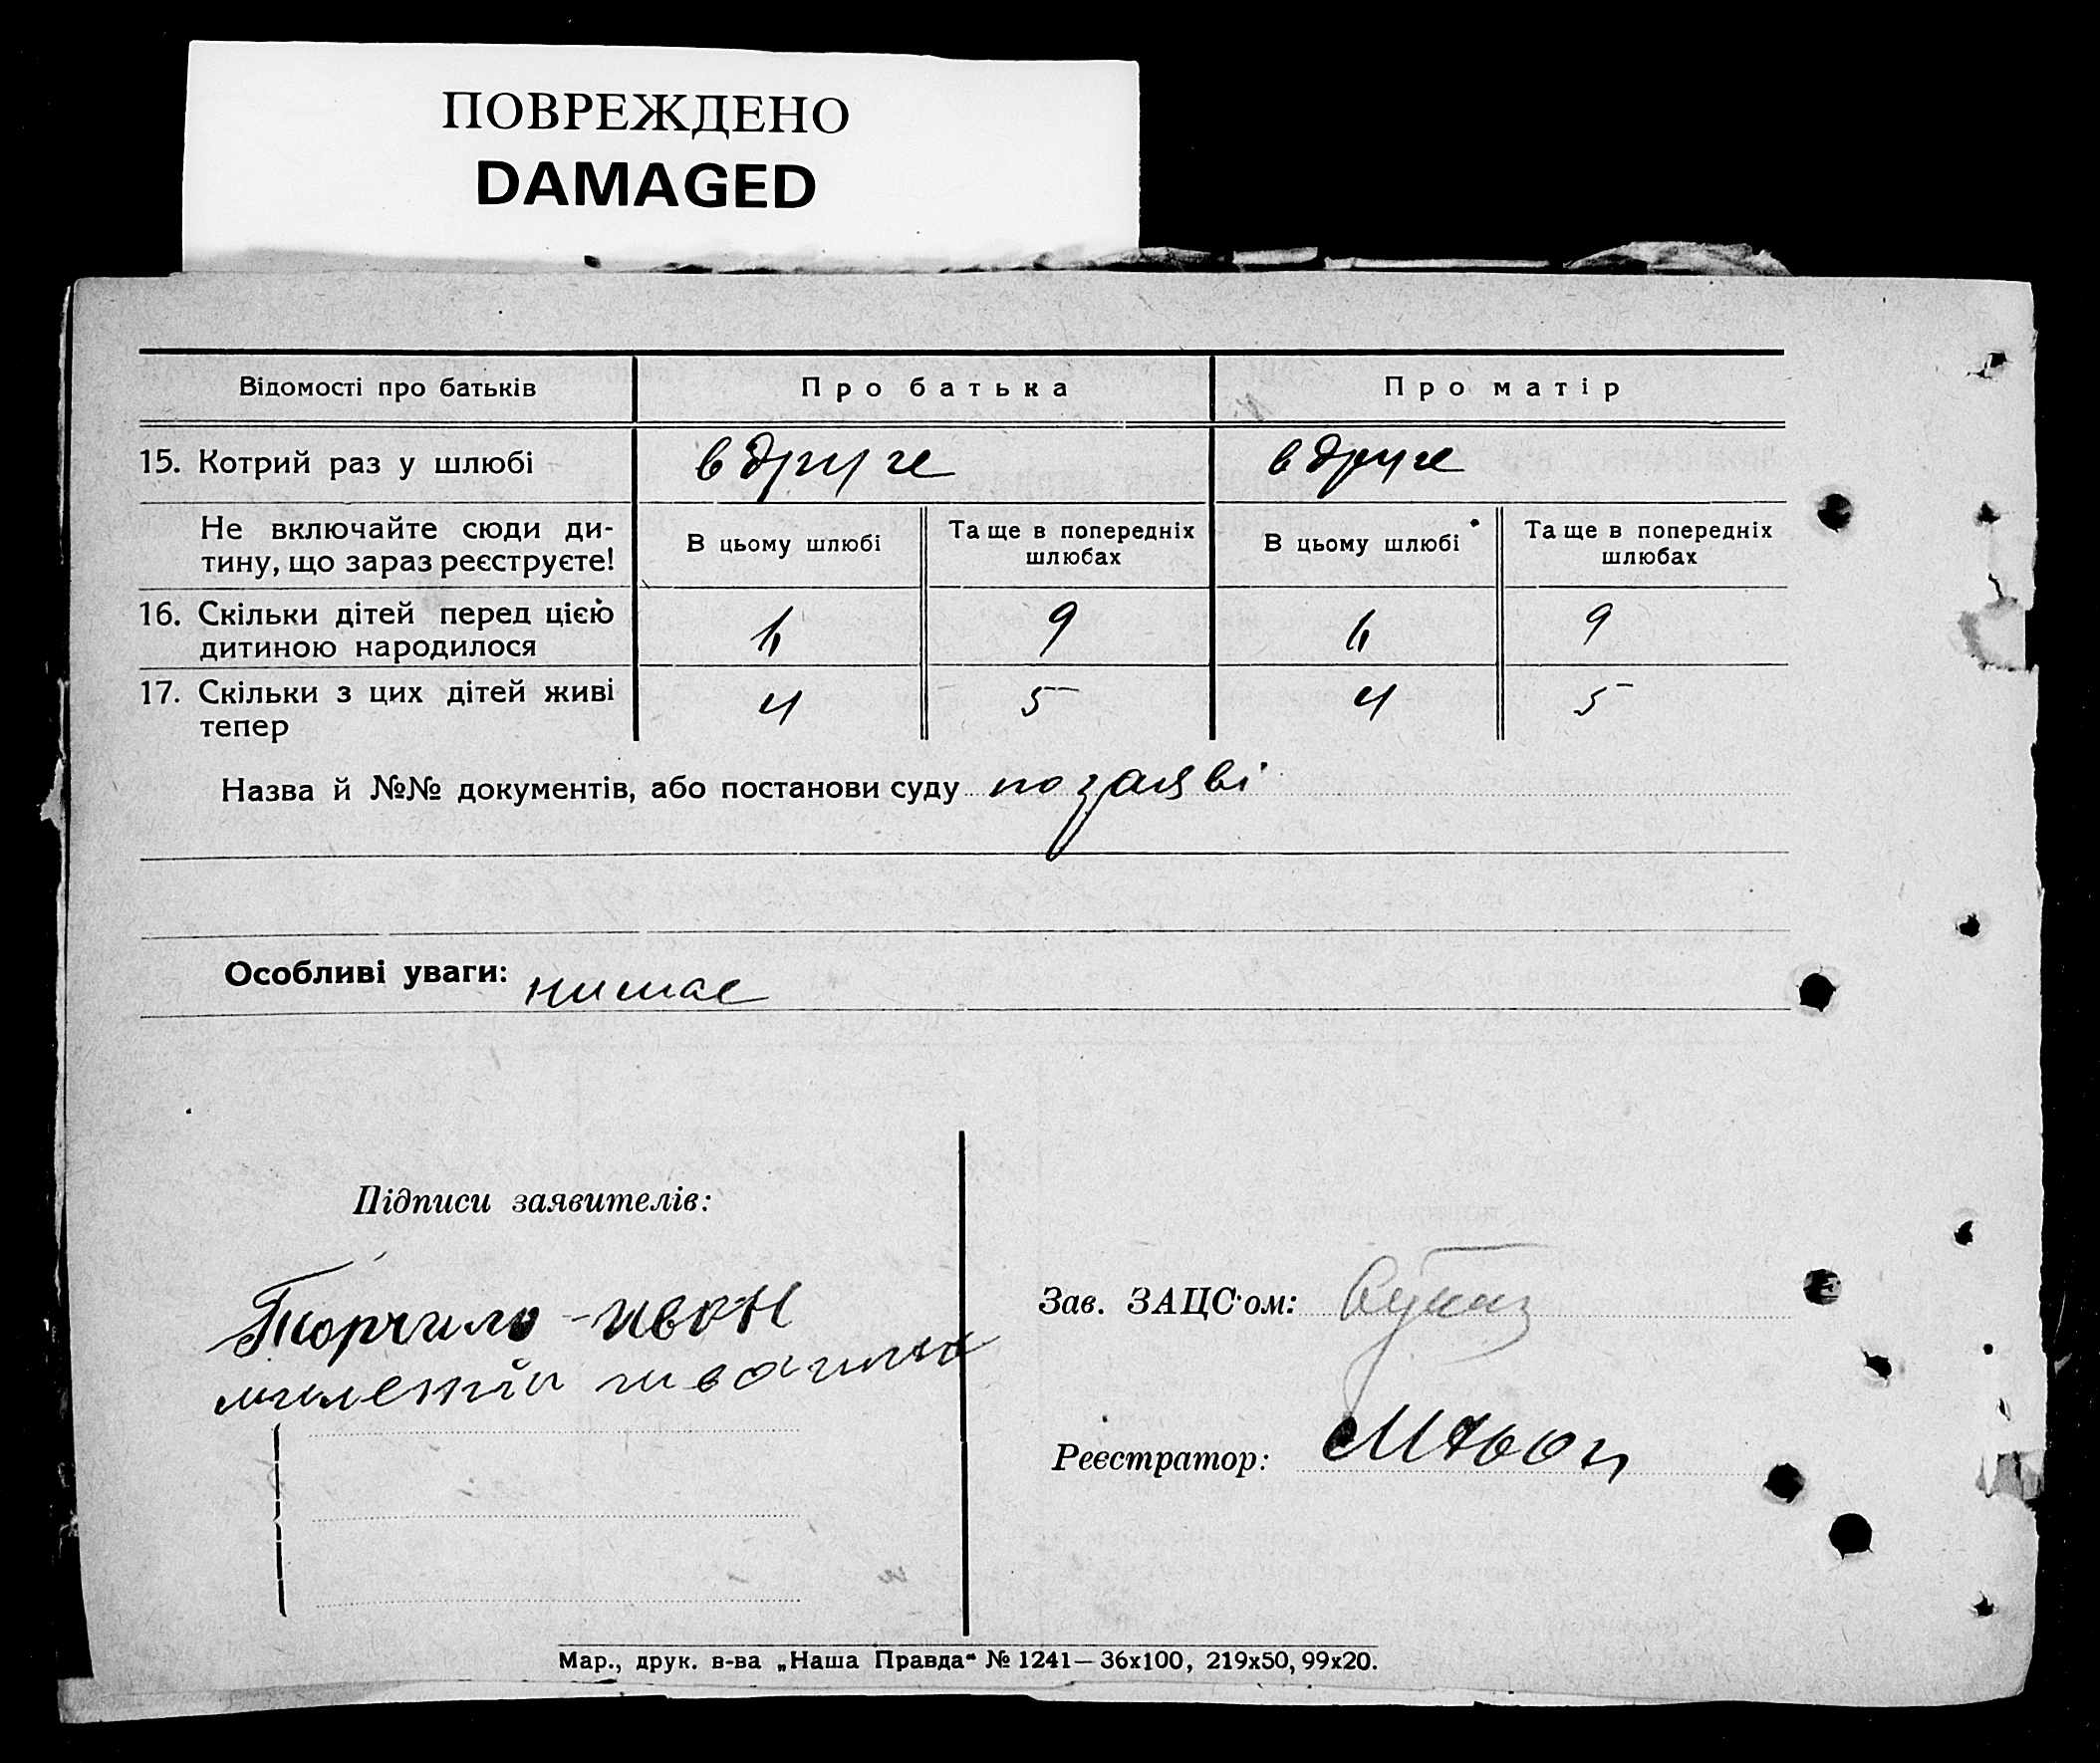 ПОВРЕЖДЕНО
DAMAGED
Відомості про батьків
Про батька
Про матір
15. Котрий раз у шлюбі
вдруге
вдруге
Не включайте сюди ди-
тину, що зараз реєструєте!
В цьому шлюбі
Та ще в попередніх
шлюбах
В цьому шлюбі
Та ще в попередніх
шлюбах
16. Скільки дітей перед цією
дитиною народилося
9
9
17. Скільки з цих дітей живі
тепер
4
5
4
5
Назва й №№ документів, або постанови суду по заяві
Особливі уваги: нимає
Підписи заявителів:
Зав. ЗАЦС'ом:
Реєстратор:
Мар., друк. в-ва „Наша Правда“ № 1241—36х100, 219х50, 99х20.